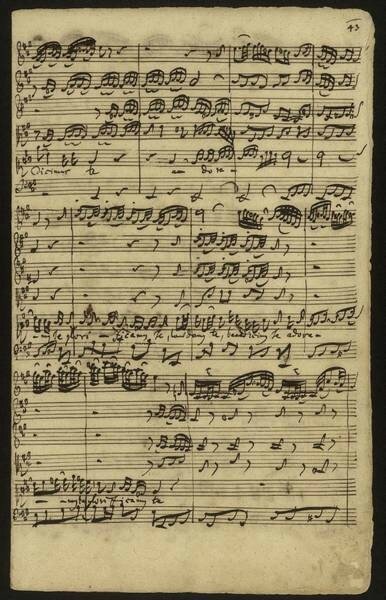 43
dicimus te adora-
te glori - ficamus te laudamus te, benedicimus te adora-
- mus te glorificamus te